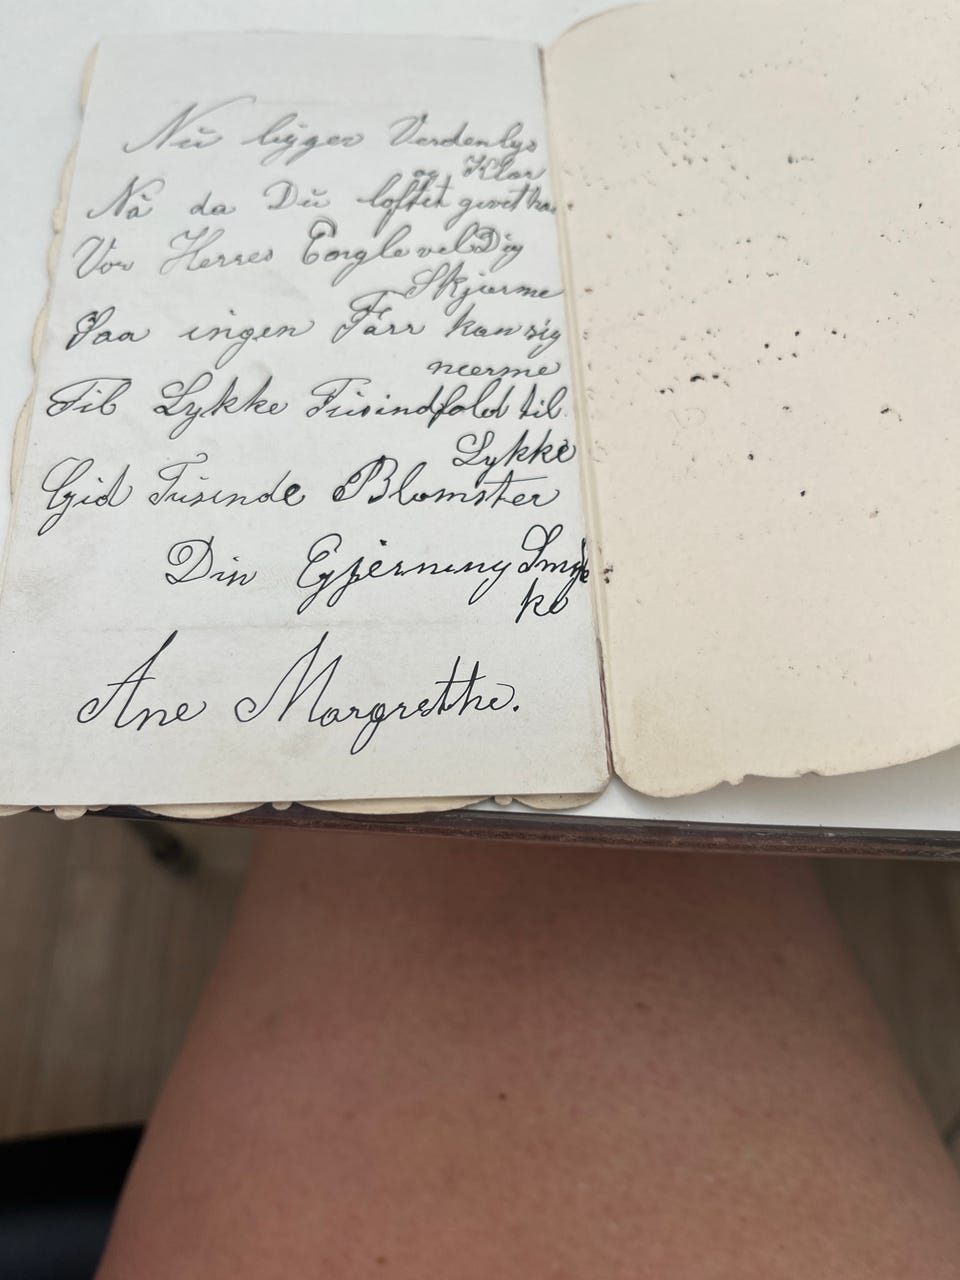 Nŭ ligger Verden lys
og Klar
Nå da Dŭ løftet givet har
Vor Herres Engle vel Dig
Skjærme
Saa ingen Farr kan sig
nærme
Til Lykke Tŭsindfold til
Lykke
Gid Tŭsinde Blomster
Din Gjerning Smyk
ke
Ane Margrethe.